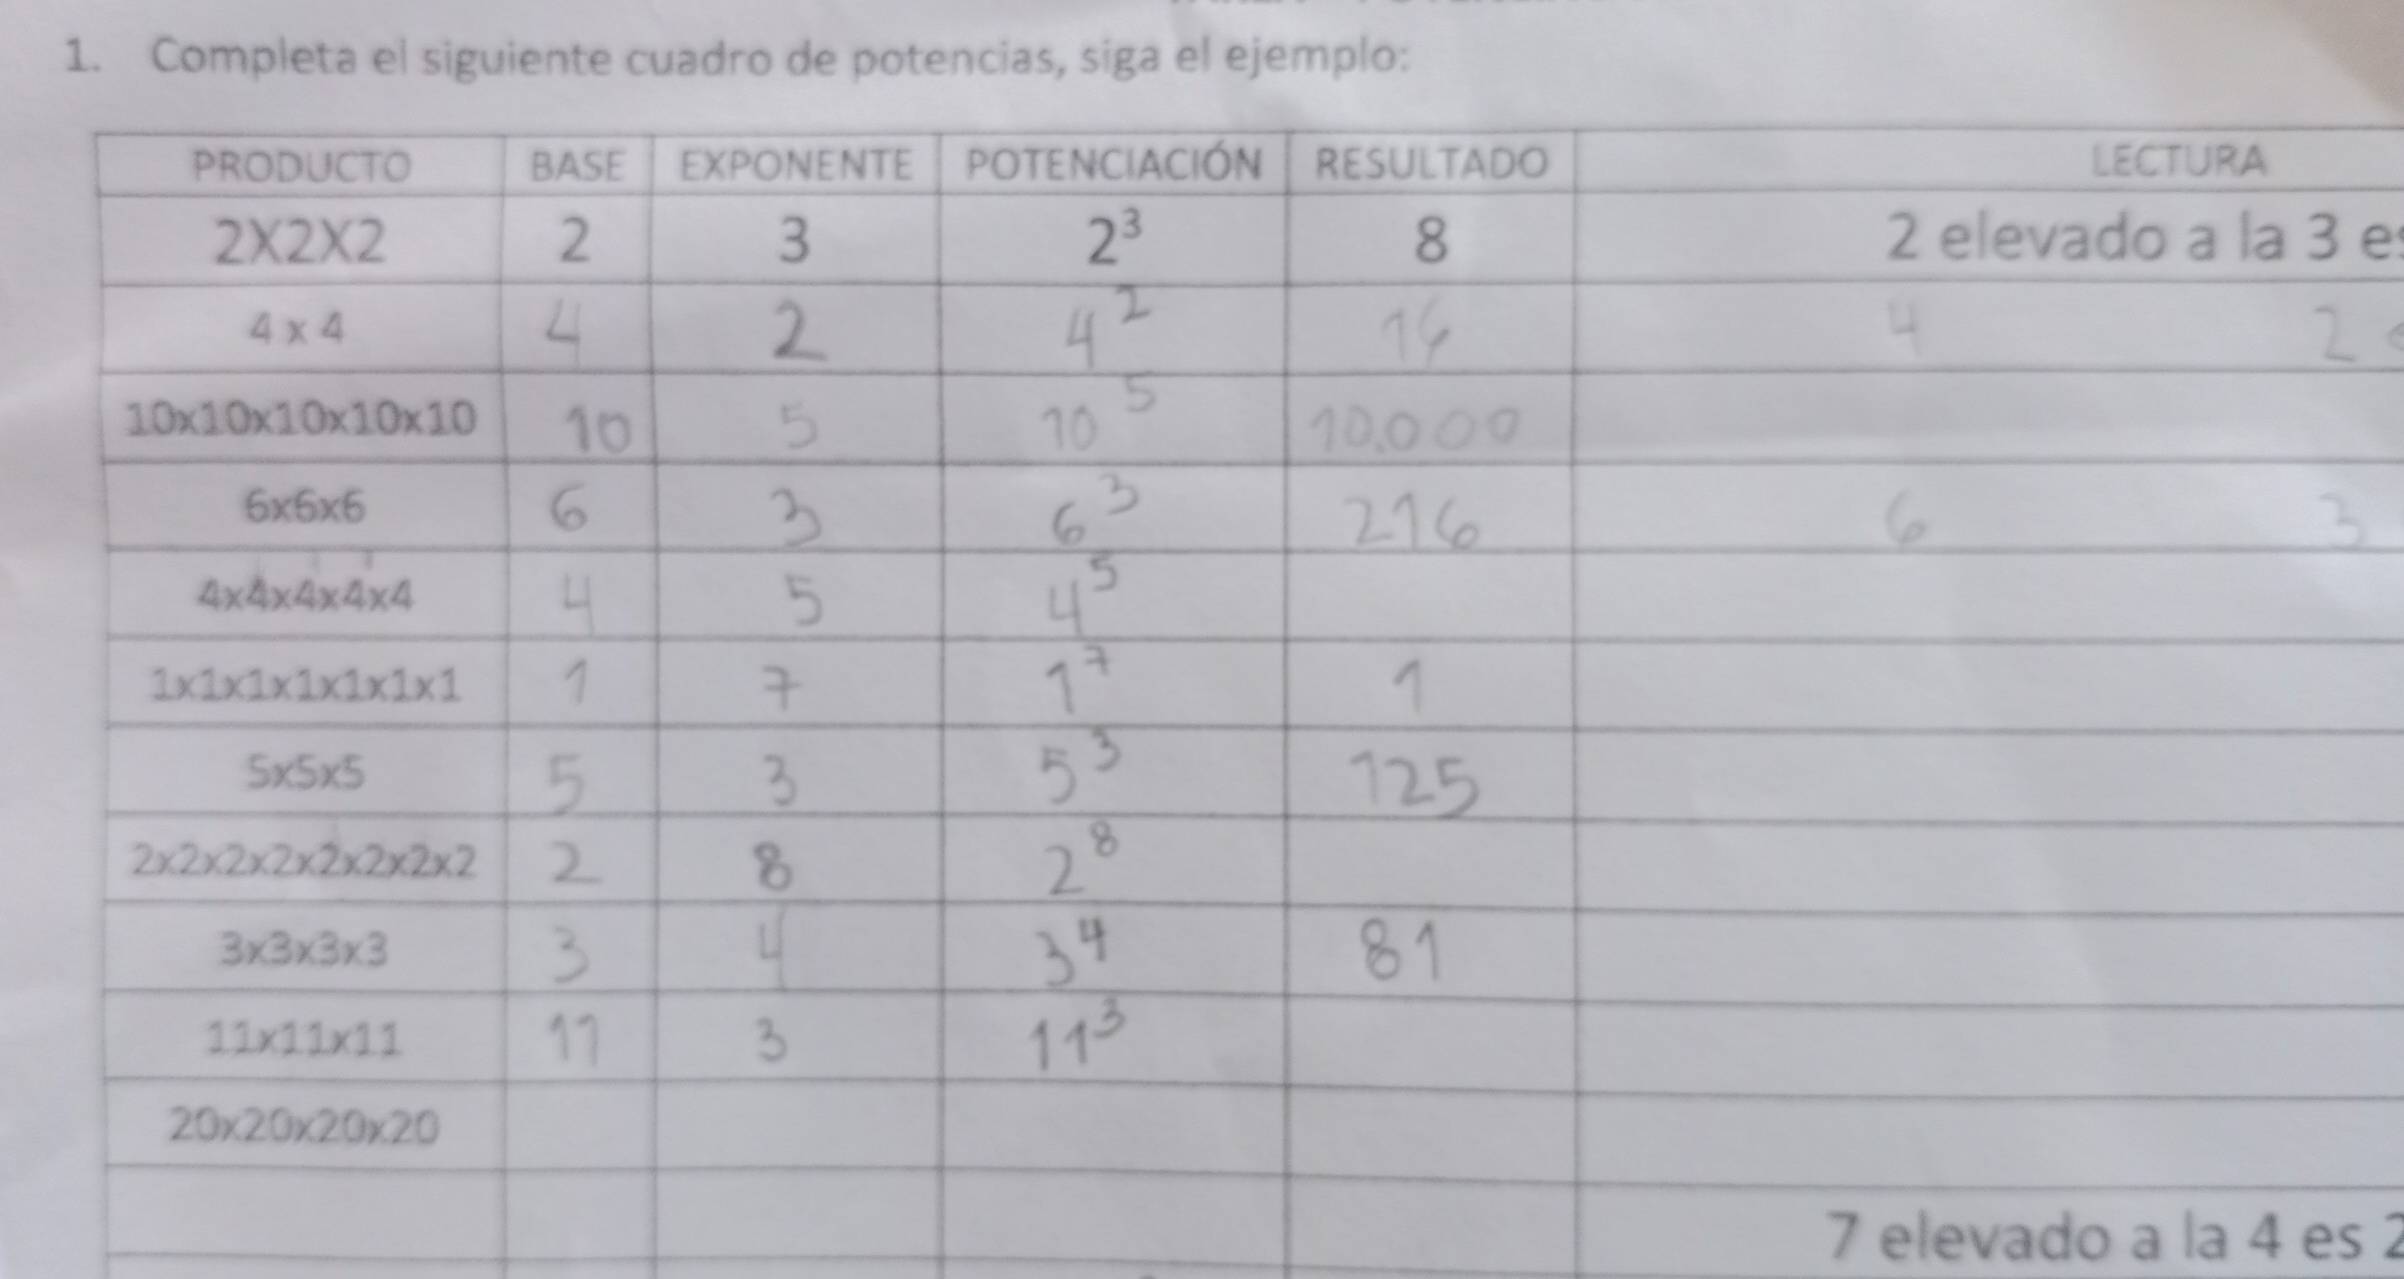 1. Completa el siguiente cuadro de potencias, siga el ejemplo:
PRODUCTO BASE EXPONENTE POTENCIACIÓN RESULTADO LECTURA
2X2X2 2 3 2³ 8 2 elevado a la 3 es
4 x 4 4 2 4² 16 4 2
10x10x10x10x10 10 5 10⁵ 10.000
6x6x6 6 3 6³ 216 6 3
4x4x4x4x4 4 5 4⁵
1x1x1x1x1x1x1 1 7 1⁷ 1
5x5x5 5 3 5³ 125
2x2x2x2x2x2x2x2 2 8 2⁸
3x3x3x3 3 4 3⁴ 81
11x11x11 11 3 11³
20x20x20x20
7 elevado a la 4 es 2